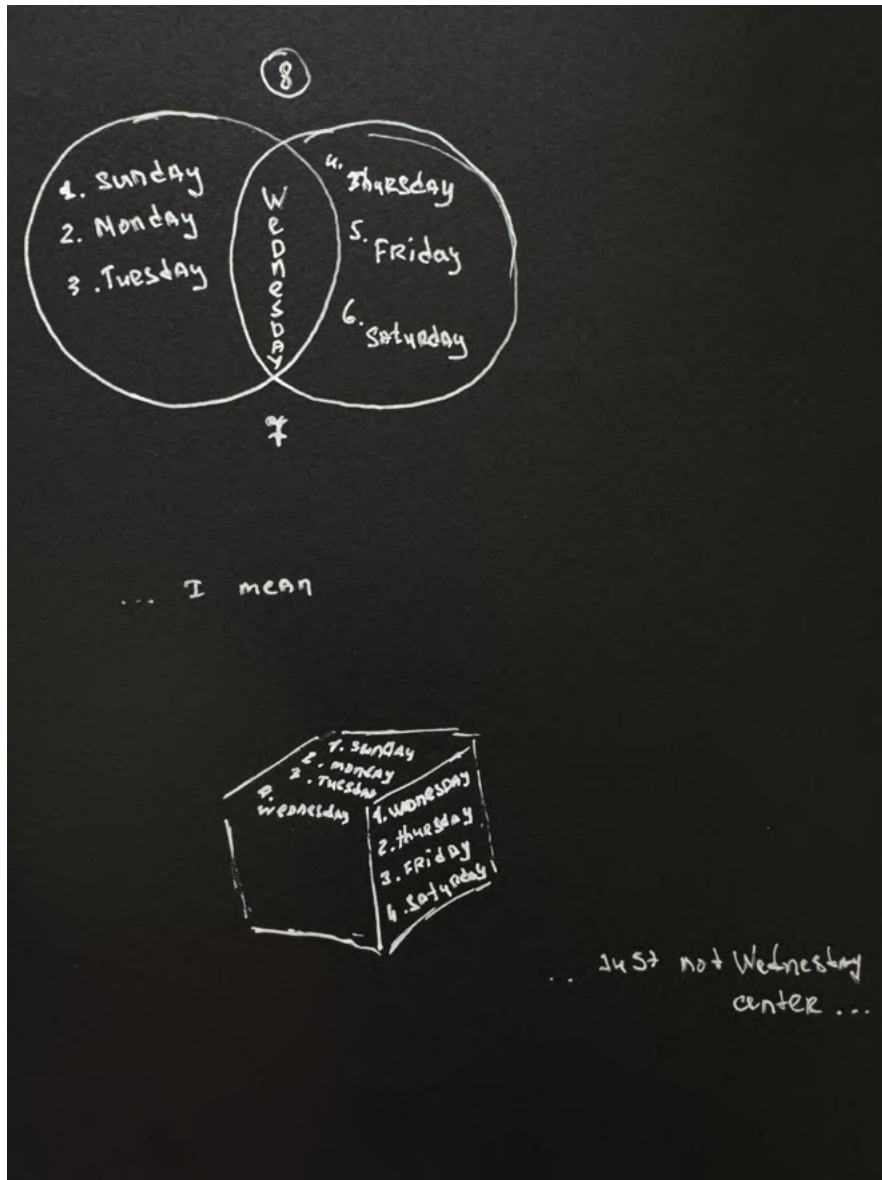 8
1. Sunday
2. Monday
3. Tuesday
Wednesday
4. Thursday
5. Friday
6. Saturday
7
... I mean
1. Sunday
2. Monday
3. Tuesday
4. Wednesday
1. Wednesday
2. Thursday
3. Friday
4. Saturday
.. Just not Wednesday
center ...